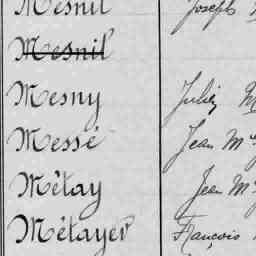 Mesnil Joseph
Mesnil
Mesny Julien
Messé Jean M
Métay Jean M
Métayer François